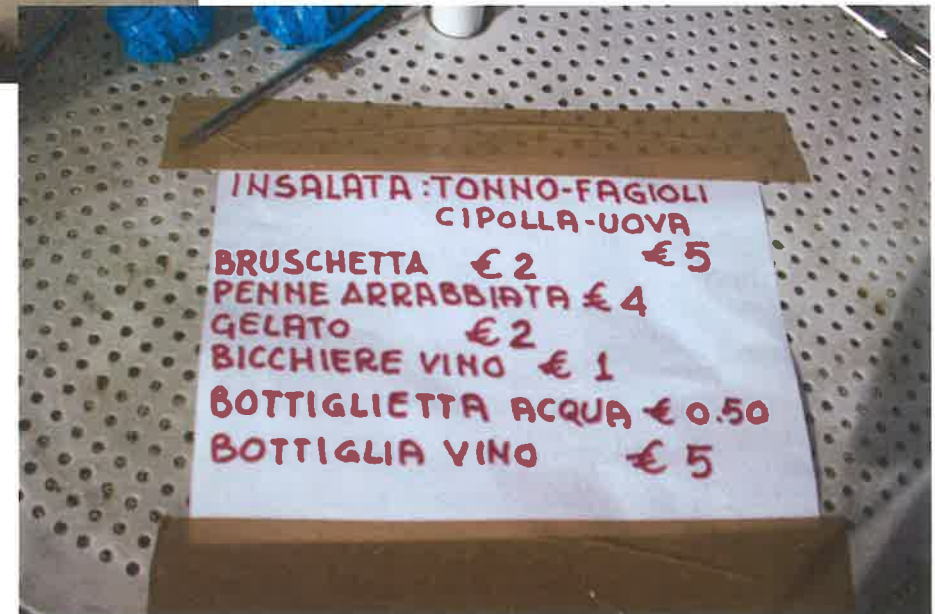 INSALATA:TONNO-FAGIOLI
CIPOLLA-UOVA
€5
BRUSCHETTA €2
PENNE ARRABBIATA €4
GELATO €2
BICCHIERE VINO €1
BOTTIGLIETTA ACQUA €0.50
BOTTIGLIA VINO €5